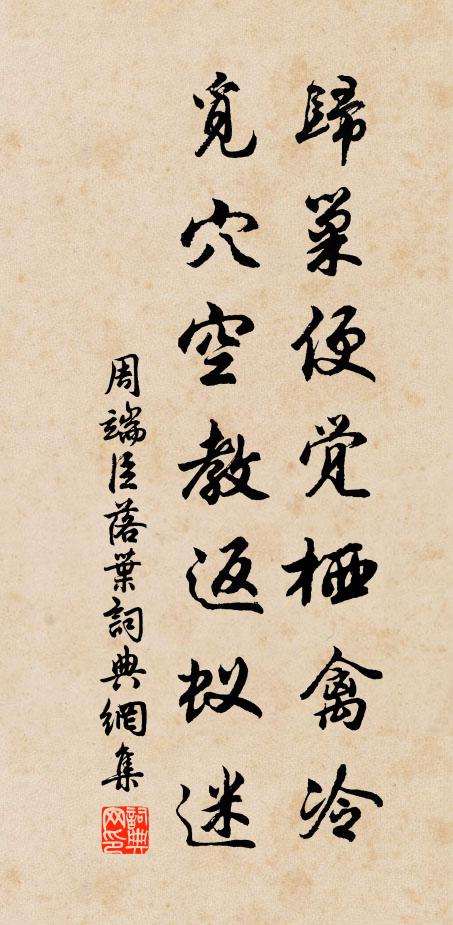 歸巢便覚栖禽冷
覓穴空教返蚁迷
周端臣落葉詞典網集
詞典網印